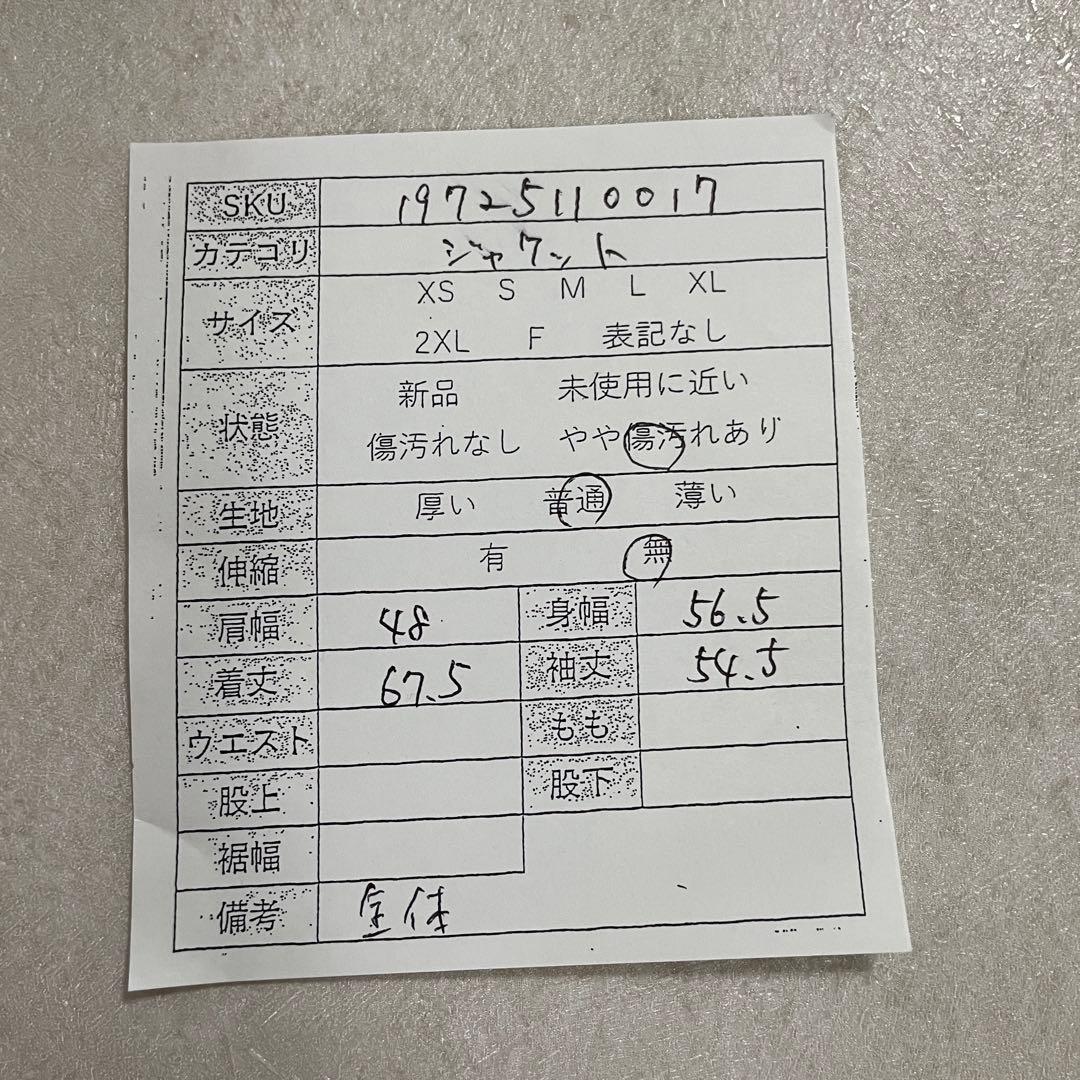 SKU 19725110017
カテゴリ ジャケット
サイズ XS S M L XL
2XL F 表記なし
状態 新品 未使用に近い
傷汚れなし やや傷汚れあり
生地 厚い 普通 薄い
伸縮 有 無
肩幅 48 身幅 56.5
着丈 67.5 袖丈 54.5
ウエスト もも
股上 股下
裾幅
備考 全体